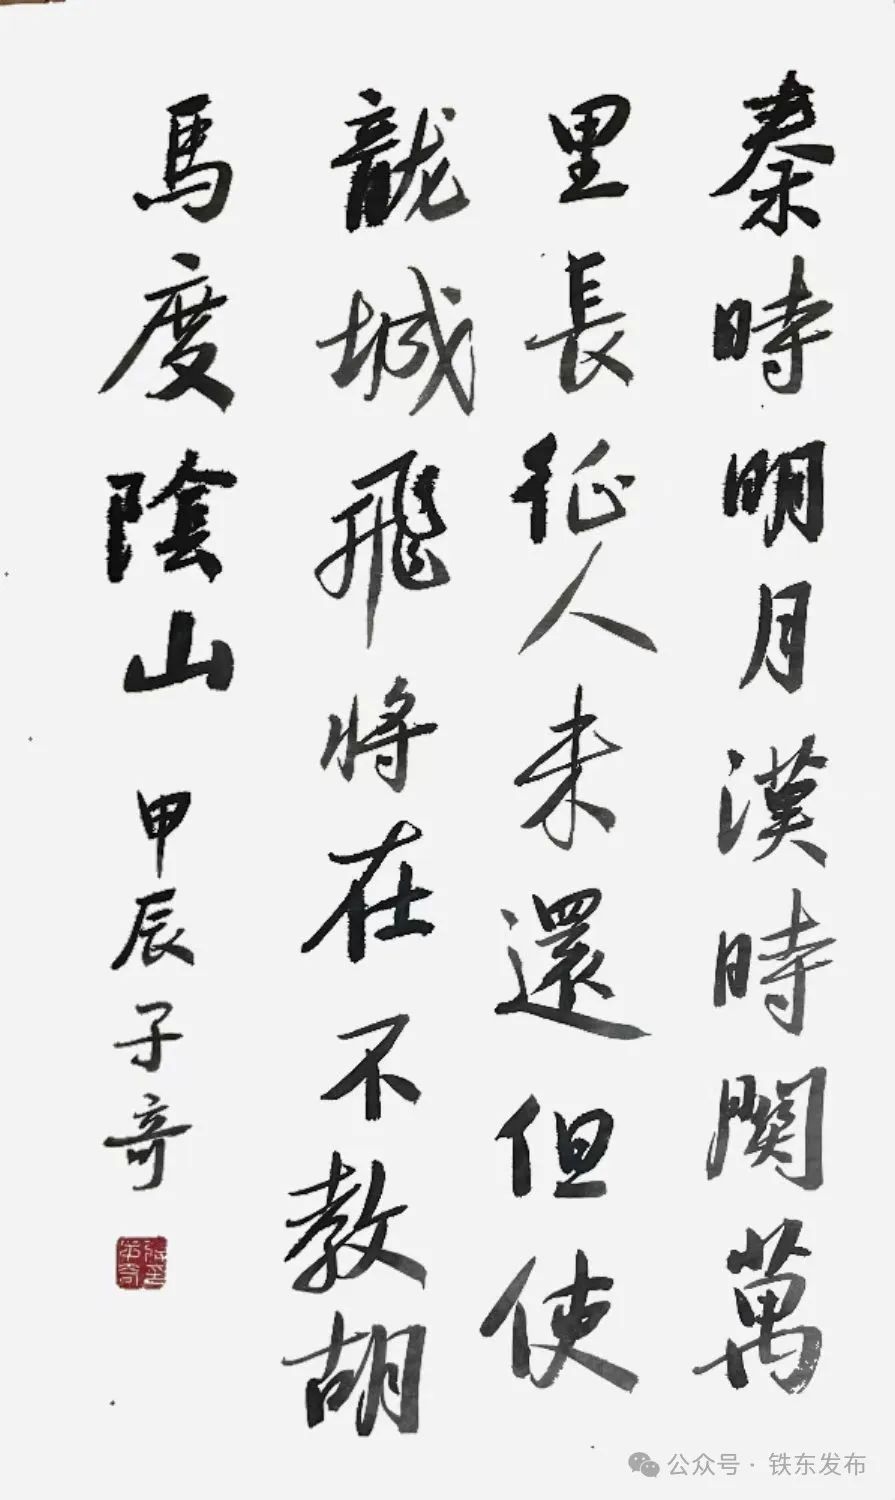 秦時明月漢時関萬
里長征人未還但使
龍城飛將在不教胡
馬度陰山
甲辰子奇
公众号·铁东发布